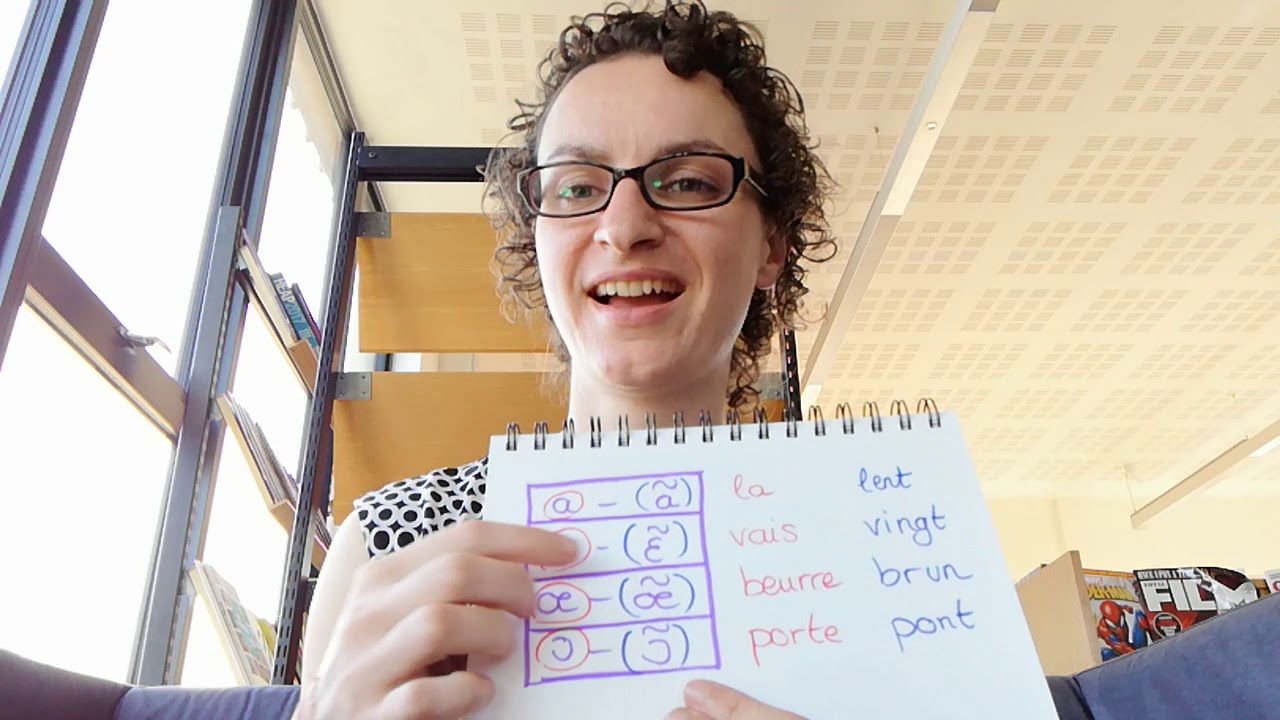 a – (ã) la lent
– (ɛ̃) vais vingt
œ – (œ̃) beurre brun
ɔ – (ɔ̃) porte pont
SPIDER-MAN
TOTAL
FILM